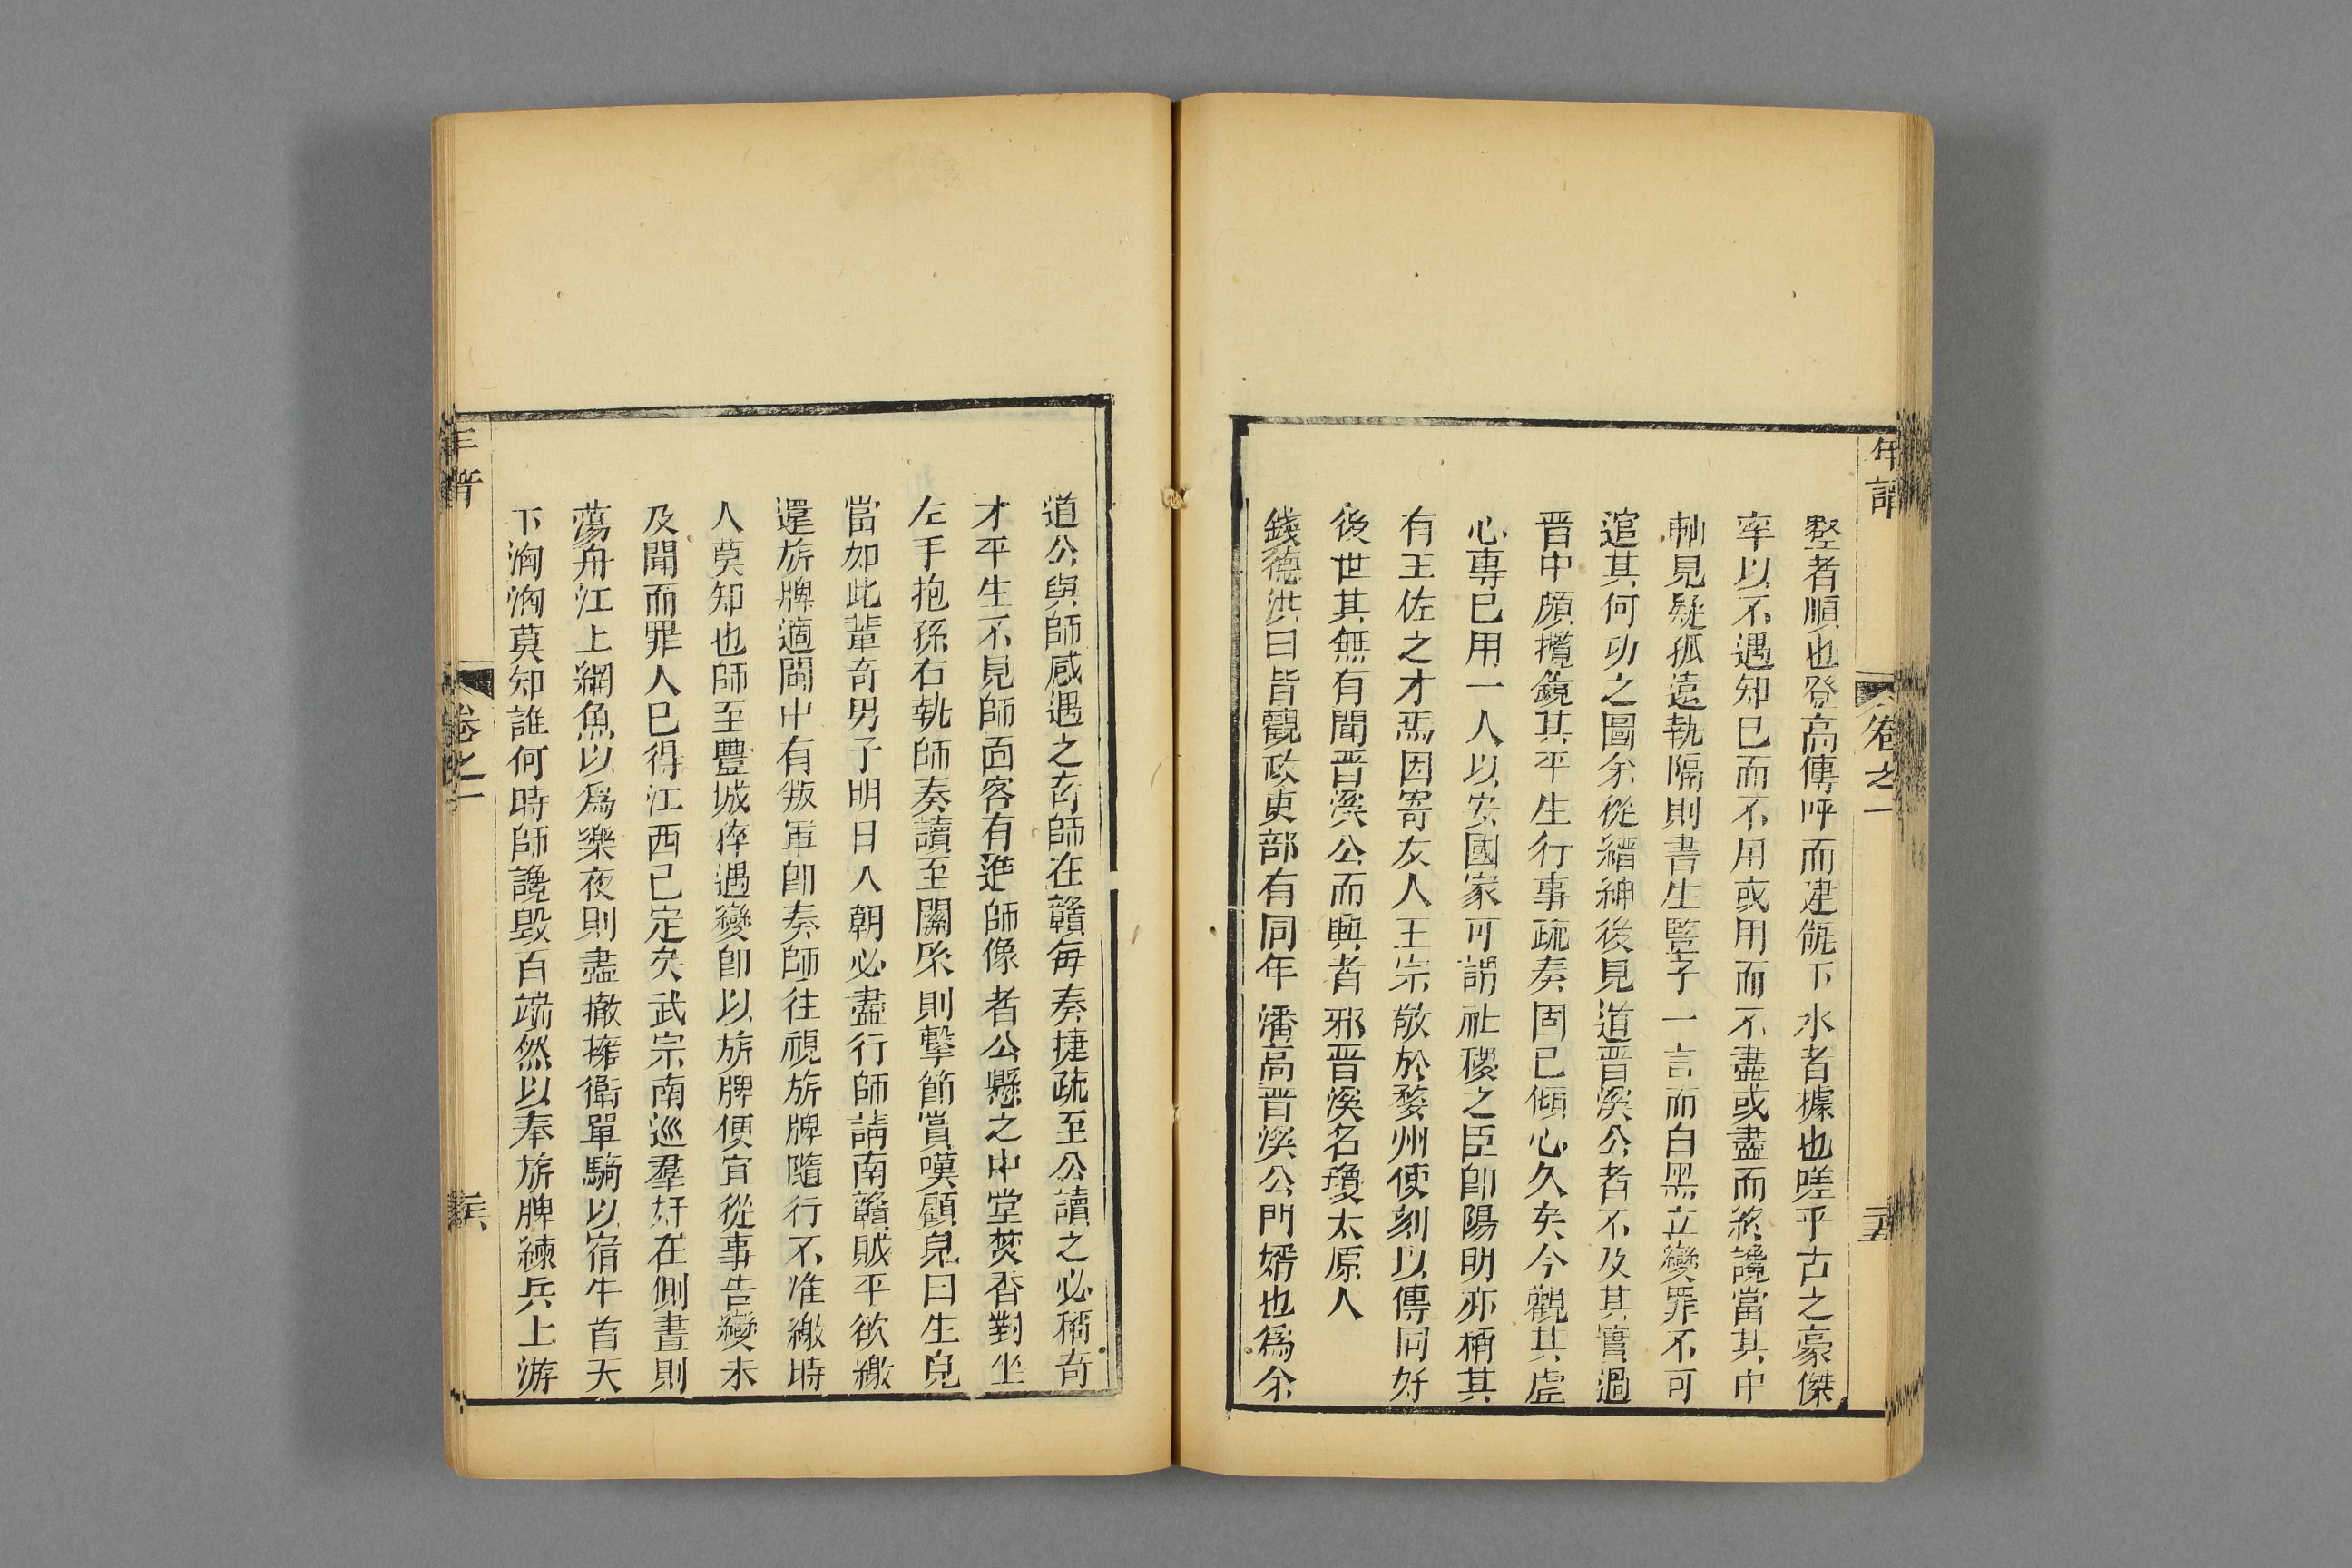 年譜
卷之一
三五
壑者順也登高傳呼而建瓴下水者據也嗟乎古之豪傑
率以不遇知已而不用或用而不盡或盡而終讒當其中
制見疑孤遠執隔則書生豎子一言而白黑立變罪不可
逭其何功之圖余從縉紳後見道晋溪公者不及其實過
晋中頗攬鏡其平生行事疏奏固已傾心久矣今觀其虚
心專已用一人以安國家可謂社稷之臣卽陽明亦稱其
有王佐之才焉因寄友人王宗敬於婺州便刻以傳同好
後世其無有聞晋溪公而興者邪晋溪名瓊太原人
錢德洪曰昔觀政吏部有同年潘高晋溪公門婿也爲余
道公與師感遇之奇師在贛每奏捷疏至公讀之必稱奇
才平生不見師面客有進師像者公懸之中堂焚香對坐
左手抱孫右執師奏讀至關係則擊節賞嘆顧兒曰生兒
當如此輩奇男子明日入朝必盡行師請南贛賊平欲繳
還旂牌適閩中有叛軍卽奏師往視旂牌隨行不准繳時
人莫知也師至豐城猝遇變卽以旂牌便宜從事告變未
及聞而罪人已得江西已定矣武宗南巡羣奸在側晝則
蕩舟江上網魚以爲樂夜則盡撤擁衛單騎以宿牛首天
下洶洶莫知誰何時師讒毀百端然以奉旂牌練兵上游
年譜
卷之一
三六